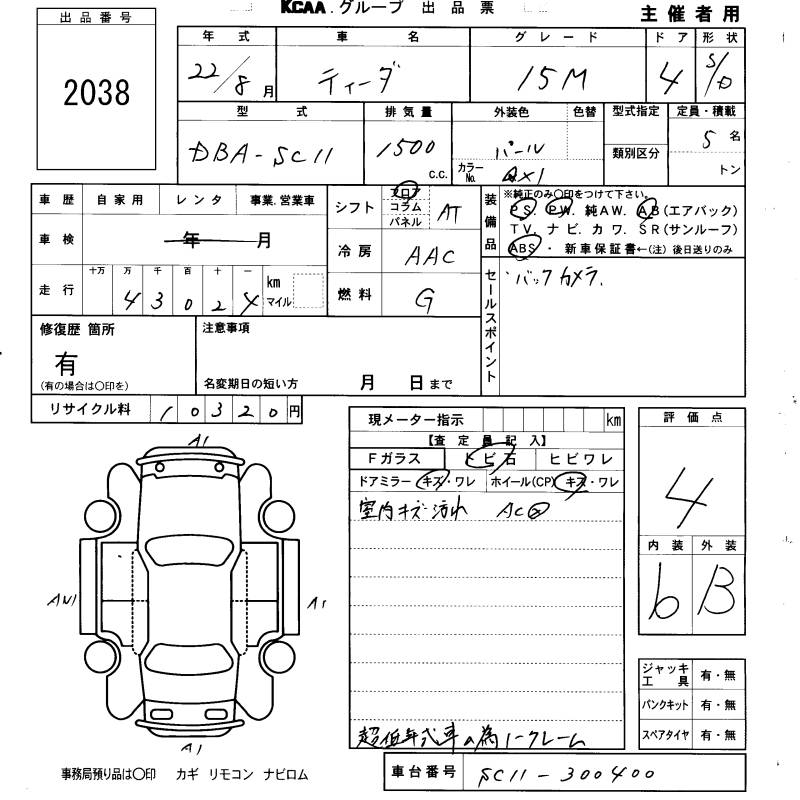 KCAA.グループ 出品票
主催者用
出品番号
2038
年式 車名 グレード ドア 形状
22/8月 ティーダ 15M 4 5/D
型式 排気量 外装色 色替 型式指定 定員・積載
DBA-SC11 1500 c.c. パール 5名
カラーNo. QX1 類別区分 トン
車歴 自家用 レンタ 事業.営業車
車検 年 月
走行 十万 万 千 百 十 一 km マイル
4 3 0 2 4
シフト フロア コラム パネル AT
冷房 AAC
燃料 G
装備品 ※純正のみ○印をつけて下さい。
PS. PW. 純AW. AB(エアバック)
TV. ナビ. カワ. SR(サンルーフ)
ABS ・ 新車保証書←(注)後日送りのみ
セールスポイント
バックカメラ.
修復歴 箇所
有
(有の場合は○印を)
注意事項
名変期日の短い方 月 日まで
リサイクル料 10320円
現メーター指示 km
【査定員記入】
Fガラス トビ石 ヒビワレ
ドアミラー キズ・ワレ ホイール(CP) キズ・ワレ
室内キズ・汚れ
超低年式車の為ノークレーム
評価点
4
内装 外装
b B
A1
AW1
A1
A1
ジャッキ工具 有・無
パンクキット 有・無
スペアタイヤ 有・無
事務局預り品は○印 カギ リモコン ナビロム
車台番号 SC11-300400